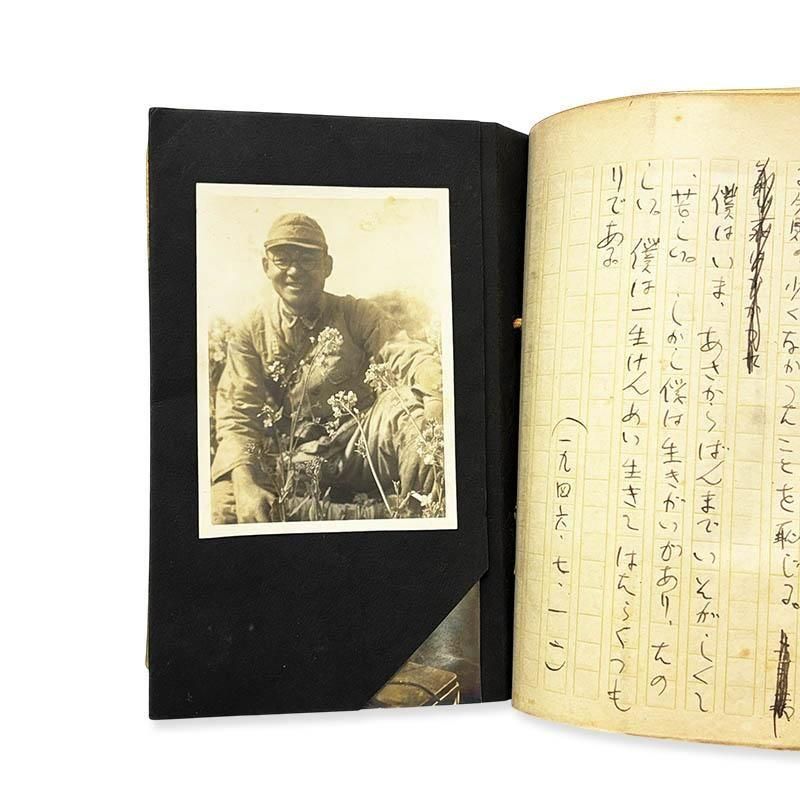 今度の、少くなかつたことを恥じる。
僕はいま、あさからばんまでいそがしくて
、苦しい。しかし僕は生きがいがあり、たの
しい。僕は一生けんめい生きて はたらくつも
りである。
（一九四六・七・一六）